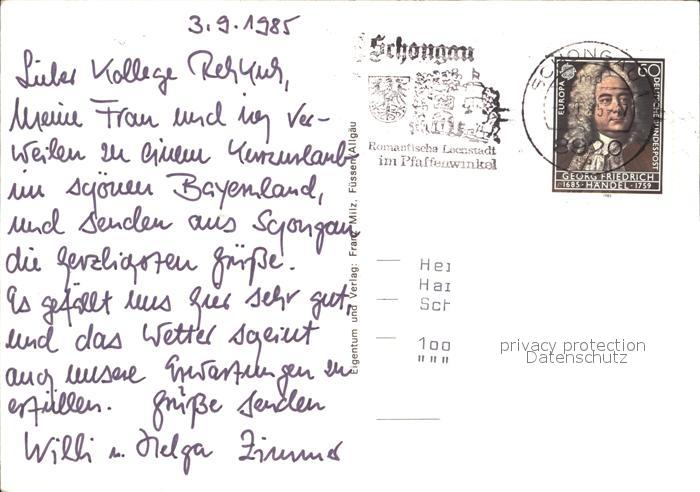 3.9.1985
Lieber Kollege
meine Frau und ich ver-
weilen zu einem Kurzurlaub
im schönen Bayernland,
und senden aus Schongau
die herzlichsten Grüße.
Es gefällt uns hier sehr gut,
und das Wetter scheint
auch unsere Erwartungen zu
erfüllen. Grüße senden
Willi u. Helga Zimmer
Eigentum und Verlag: Franz Milz, Füssen/Allgäu
Schongau
Romantische Lechstadt
im Pfaffenwinkel
SCHONGAU
8920
EUROPA
60
DEUTSCHE BUNDESPOST
GEORG FRIEDRICH
1685 · HÄNDEL · 1759
Her
Har
Sch
100
"""
privacy protection
Datenschutz